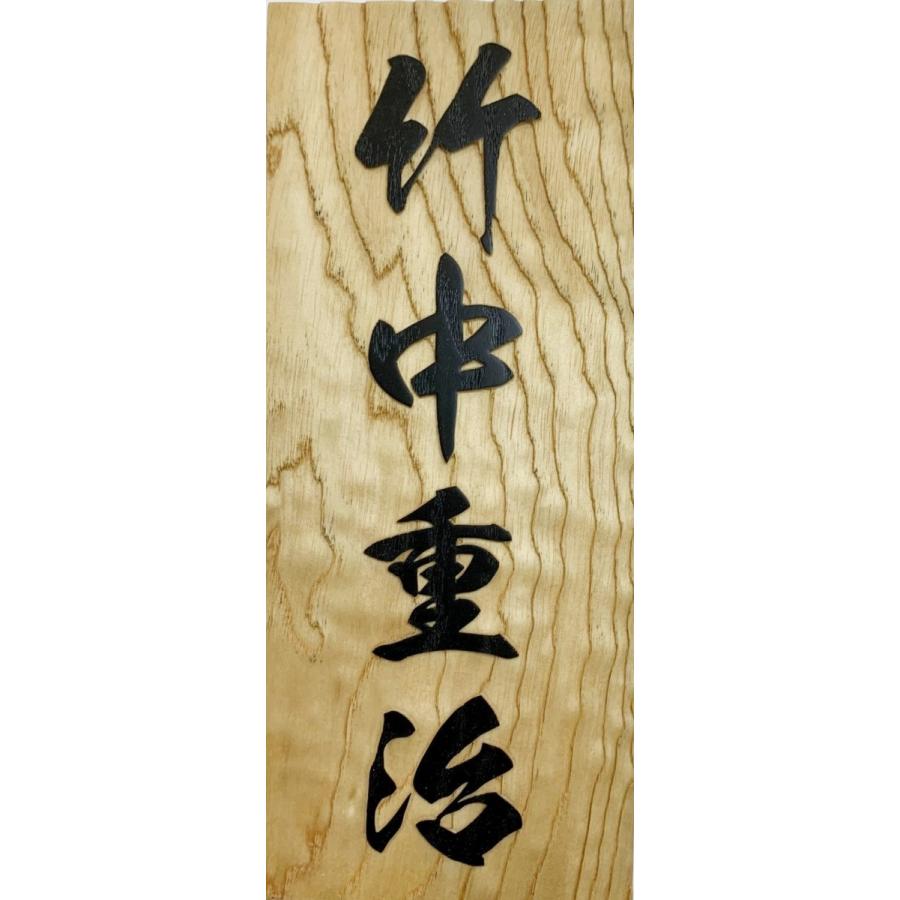 竹中重治